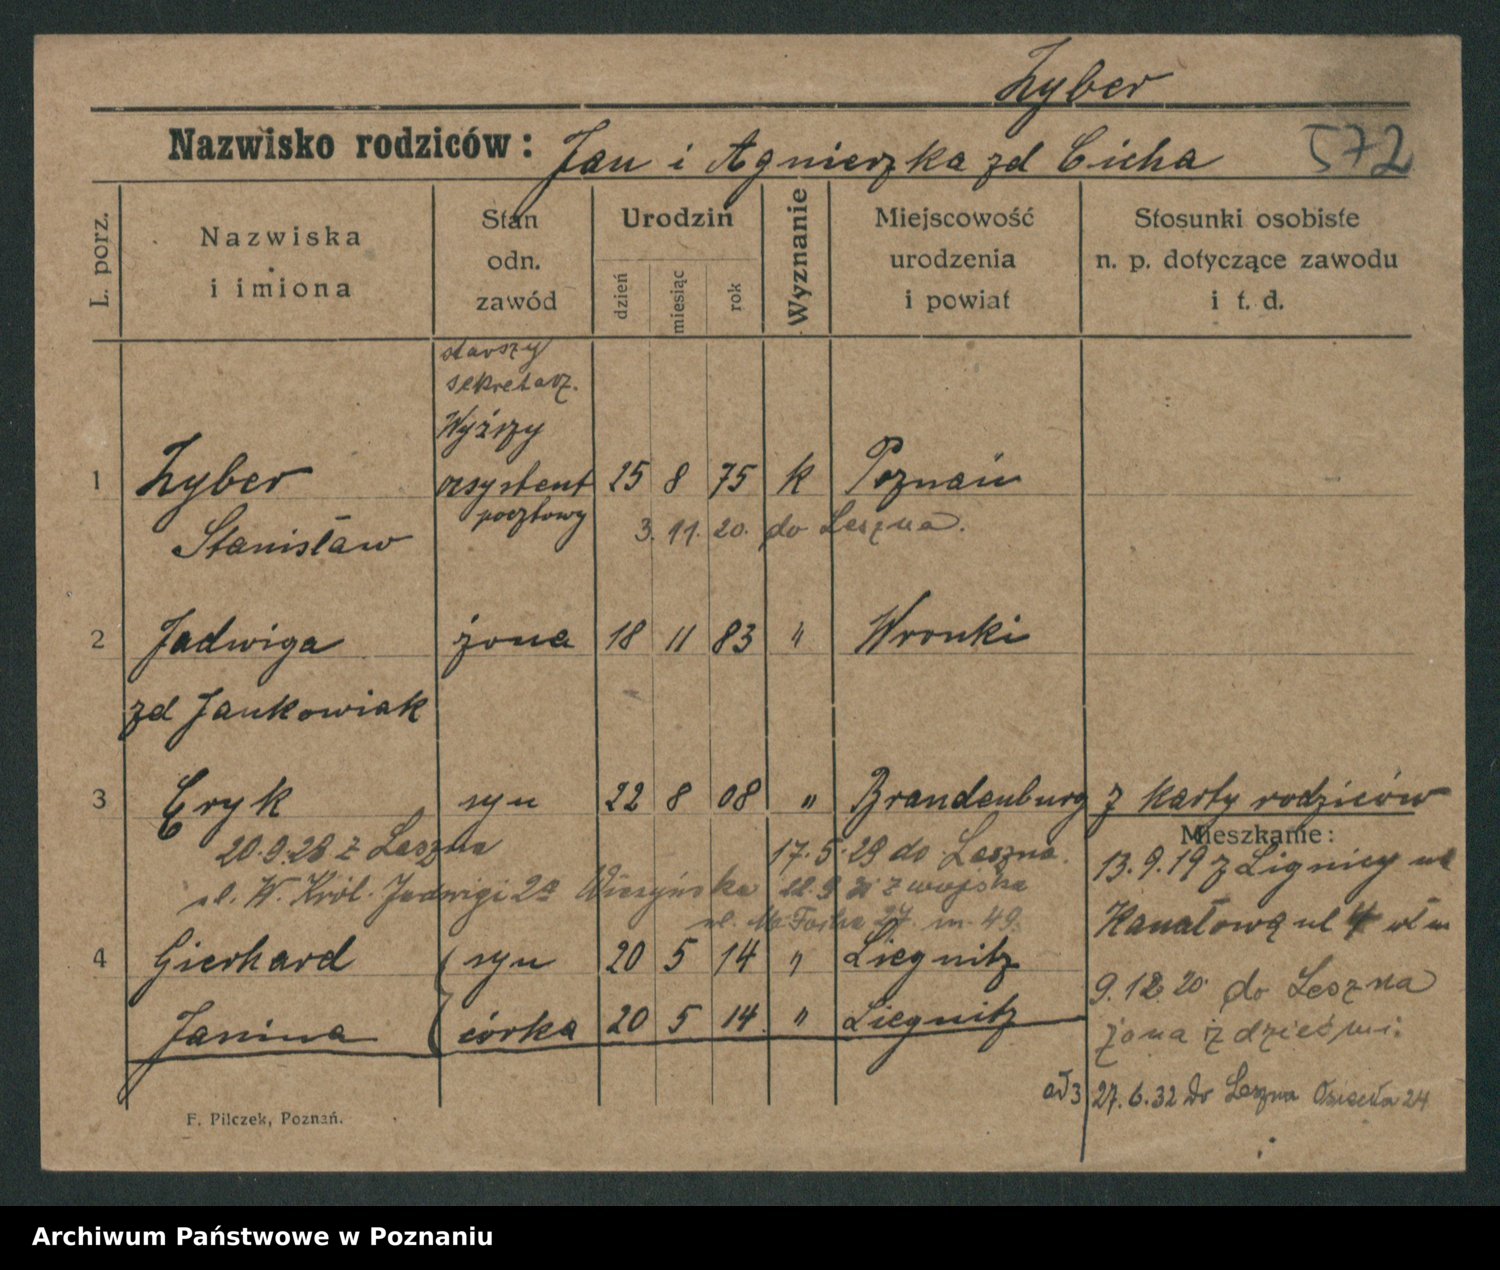 Zyber
Nazwisko rodziców: Jan i Agnieszka zd Cicha 572
L. porz.
Nazwiska
i imiona
Stan
odn.
zawód
Urodzin
dzień
miesiąc
rok
Wyznanie
Miejscowość
urodzenia
i powiat
Stosunki osobiste
n. p. dotyczące zawodu
i t. d.
starszy
sekretarz.
Wyższy
1 Zyber asystent 25 8 75 k Poznań
pocztowy
Stanisław 3. 11. 20. do Leszna.
2 Jadwiga żona 18 11 83 " Wronki
zd Jankowiak
3 Eryk syn 22 8 08 " Brandenburg z karty rodziców
Mieszkanie:
20.9.28 z Leszna 17.5.29 do Leszna.
13.9.19 z Lignicy
ul. W. Król. Jadwigi 2a z wojska
ul. M. Focha 27 m. 49.
Kanałową ul 4
4 Gierhard syn 20 5 14 " Liegnitz
9.12.20 do Leszna
Janina córka 20 5 14 " Liegnitz
żona i z dziećmi.
ad 3 27.6.32 Do Leszna 24
F. Pilczek, Poznań.
Archiwum Państwowe w Poznaniu